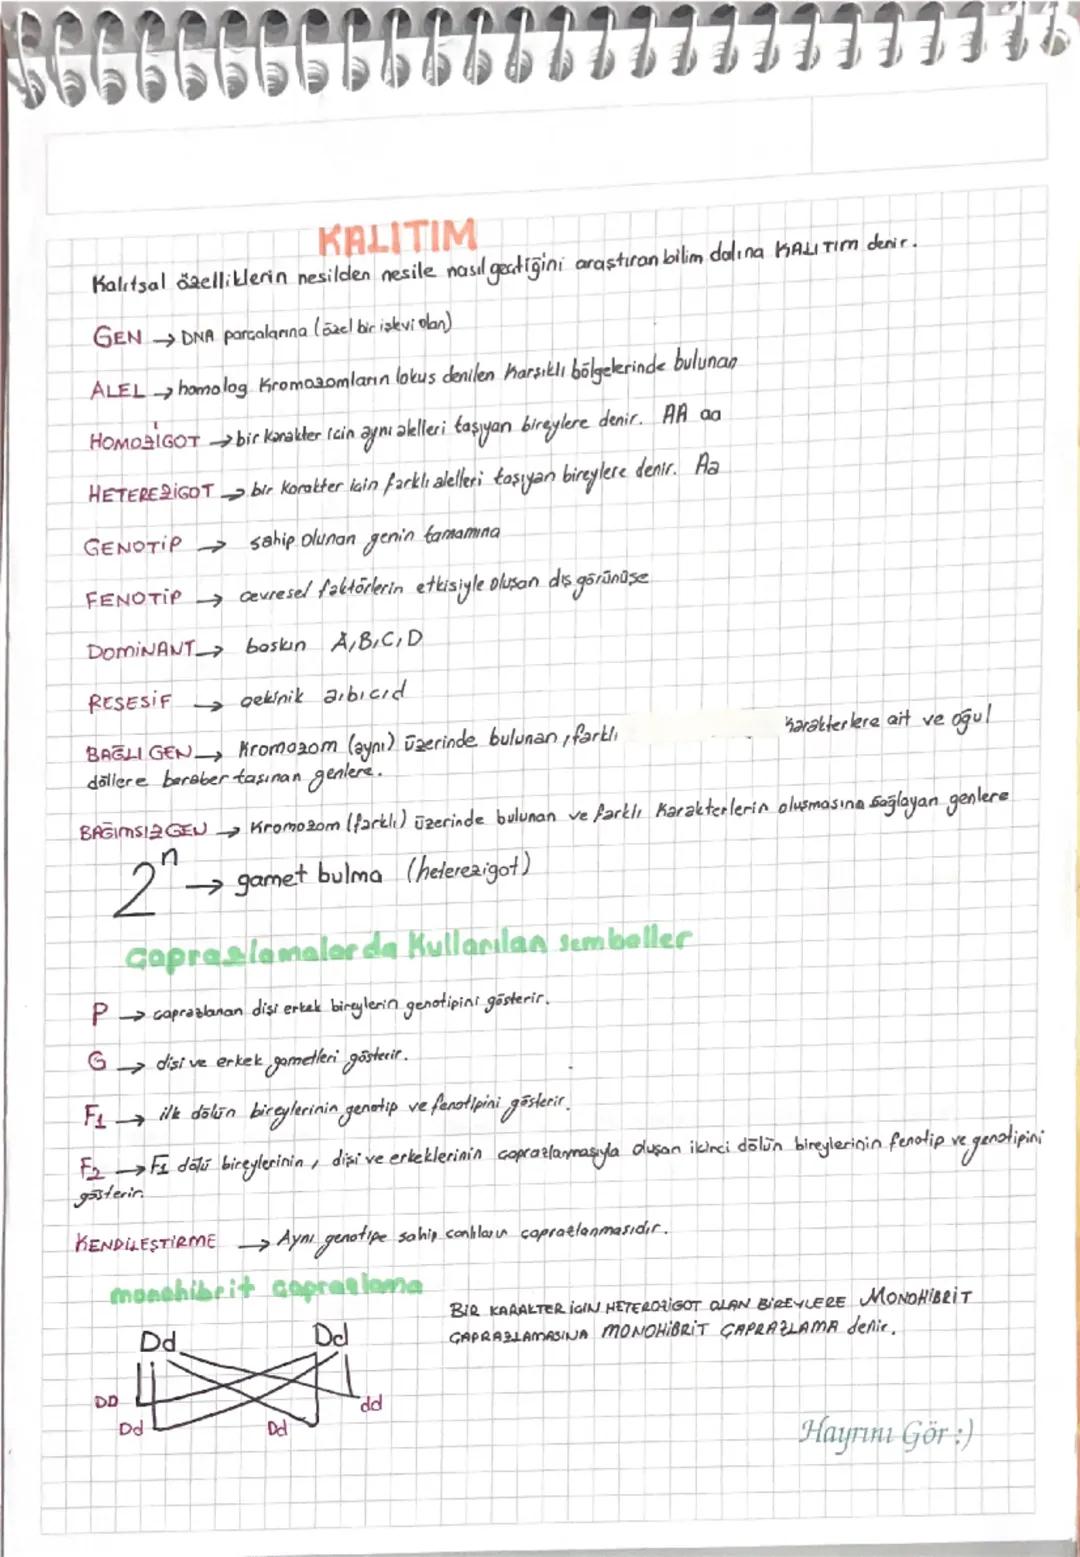 KALITIM
Kalıtsal özelliklerin nesilden nesile nasıl geçtiğini araştıran bilim dalına KALITIM denir.
GEN → DNA parçalarına (özel bir işlevi olan)
ALEL → homolog Kromozomların lokus denilen Karşıklı bölgelerinde bulunan
HOMOZİGOT → bir karakter için aynı alelleri taşıyan bireylere denir. AA aa
HETEREZİGOT → bir Karakter için farklı alelleri taşıyan bireylere denir. Aa
GENOTİP → sahip olunan genin tamamına
FENOTİP → çevresel faktörlerin etkisiyle oluşan dış görünüşe
DOMİNANT → baskın A,B,C,D
RESESİF → çekinik a,b,c,d
BAĞLI GEN → Kromozom (aynı) üzerinde bulunan, farklı karakterlere ait ve oğul
döllere beraber taşınan genlere.
BAĞIMSIZ GEN → Kromozom (farklı) üzerinde bulunan ve farklı Karakterlerin oluşmasına sağlayan genlere
2ⁿ → gamet bulma (heterezigot)
Çaprazlamalarda Kullanılan Semboller
P → çaprazlanan dişi erkek bireylerin genotipini gösterir.
G → dişi ve erkek gametleri gösterir.
F1 → ilk dölün bireylerinin genotip ve fenotipini gösterir.
F2 → F1 dölü bireylerinin, dişi ve erkeklerinin çaprazlanmasıyla oluşan ikinci dölün bireylerinin fenotip ve genotipini
gösterir.
KENDİLEŞTİRME → Aynı genotipe sahip canlıların çaprazlanmasıdır.
monohibrit çaprazlama
BİR KARAKTER İÇİN HETEROZİGOT OLAN BİREYLERE MONOHİBRİT
ÇAPRAZLAMASINA MONOHİBRİT ÇAPRAZLAMA denir.
Dd Dd
DD dd
Dd Dd
Hayrını Gör :)